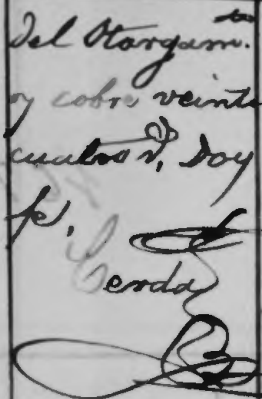 Del Otorgam.to
y cobre veinte
cuatro r.s, Doy
fe,
Cerda